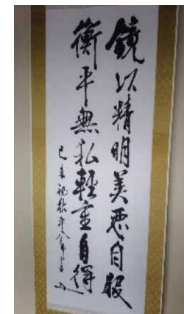 鏡以精明美惡自服
衡平無私輕重自得
己未